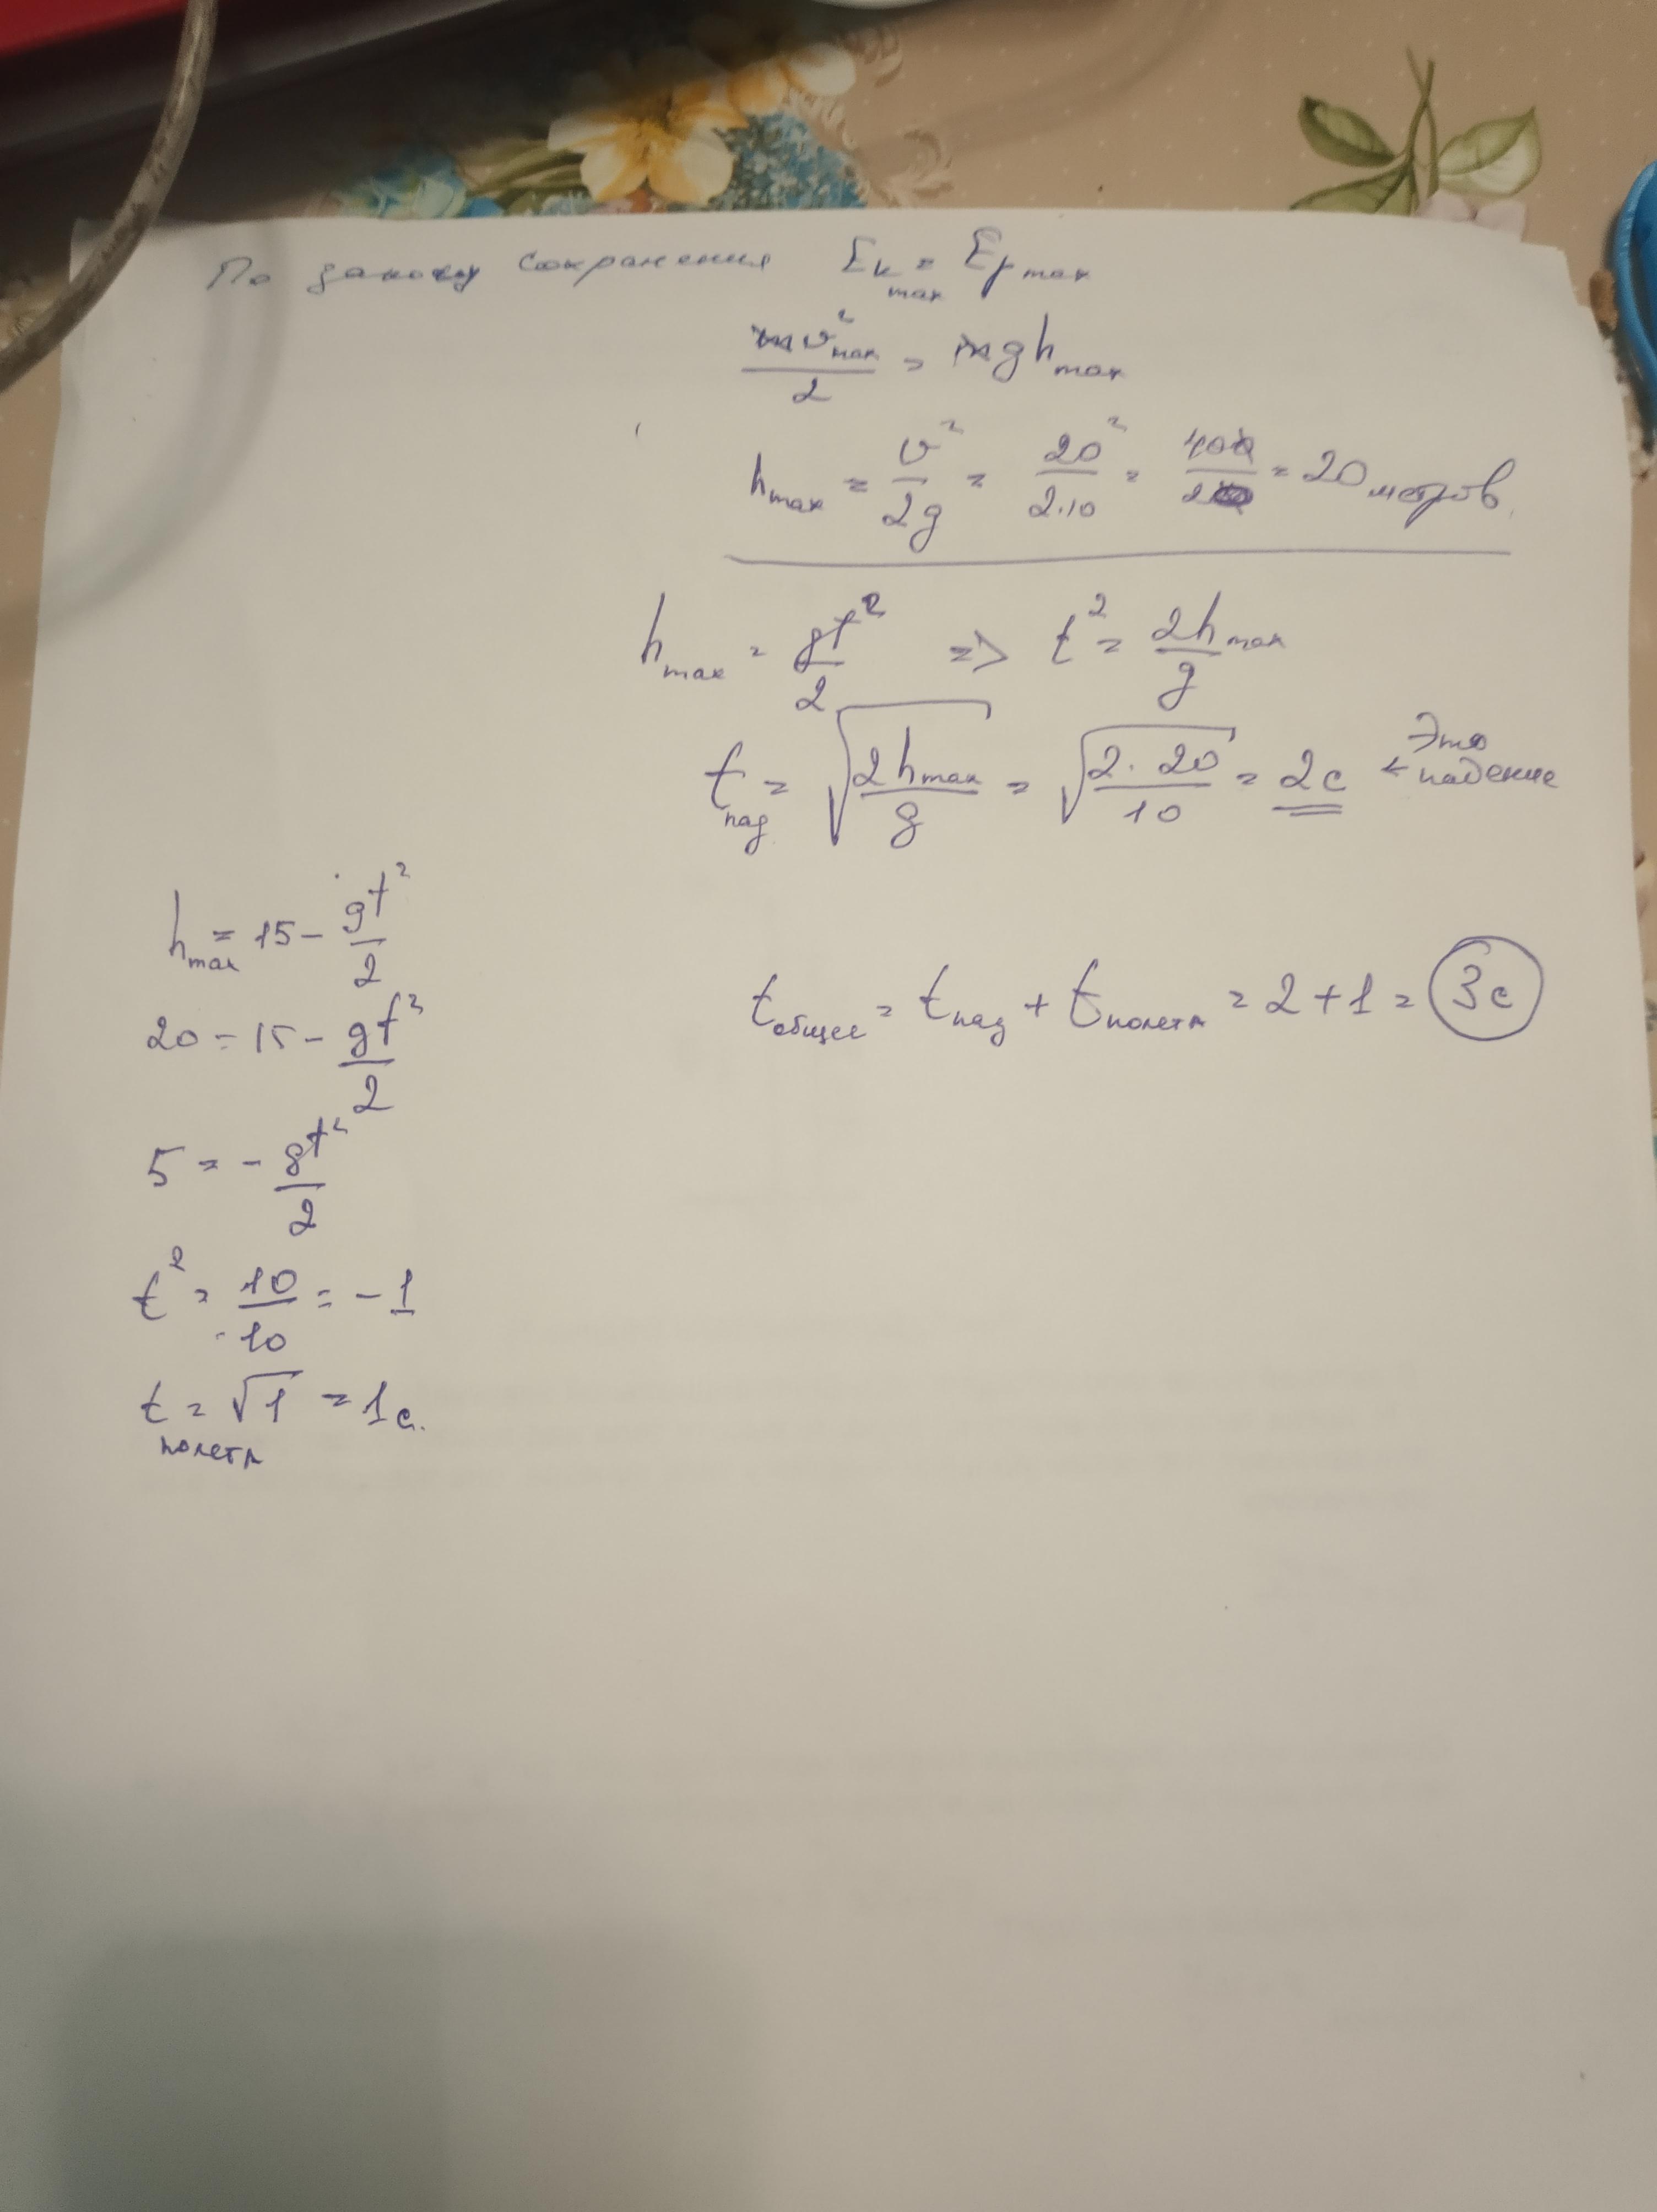 По закону сохранения E_k max = E_p max
mv²_max / 2 = mgh_max
h_max = v² / 2g = 20² / 2·10 = 400 / 20 = 20 метров
h_max = gt² / 2 => t² = 2h_max / g
t_пад = √(2h_max / g) = √(2·20 / 10) = 2с ← Это падение
h_max = 15 - gt² / 2
20 = 15 - gt² / 2
5 = - gt² / 2
t² = 10 / -10 = -1
t_полета = √1 = 1с.
t_общее = t_пад + t_полета = 2 + 1 = 3с